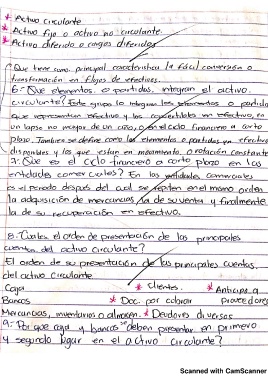 * Activo circulante
* Activo fijo o activo no circulante
* Activo diferido o cargos diferidos
¿Que tiene como principal caracteristica la fácil conversion o
transformación en flujos de efectivos.
6- Que elementos o partidas, integran el activo
circulante? Este grupo lo integran los elementos o partidas
que representan efectivo y los convertibles en efectivo, en
un lapso no mayor de un año, o en el ciclo financiero a corto
plazo. Tambien se define como los elementos o partidas en efectivo
disponibles y los que estan en movimiento o rotación constante
7: Que es el ciclo financiero a corto plazo en las
entidades comerciales? En las entidades comerciales
es el periodo despues del cual se repiten en el mismo orden
la adquisición de mercancias, la de su venta y finalmente
la de su recuperación en efectivo.
8- Cuales el orden de presentación de las principales
cuentas del activo circulante?
El orden de su presentación de las principales cuentas,
del activo circulante.
Caja * Clientes. * Anticipo a
Bancos * Doc. por cobrar proveedores
Mercancias, inventarios o almacen. * Deudores diversos
9- Por que caja y bancos se deben presentar en primero
y segundo lugar en el activo circulante?
Scanned with CamScanner